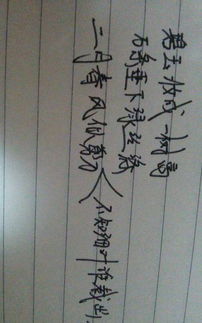 碧玉妆成一树高
万条垂下绿丝绦
二月春风似剪刀 不知细叶谁裁出